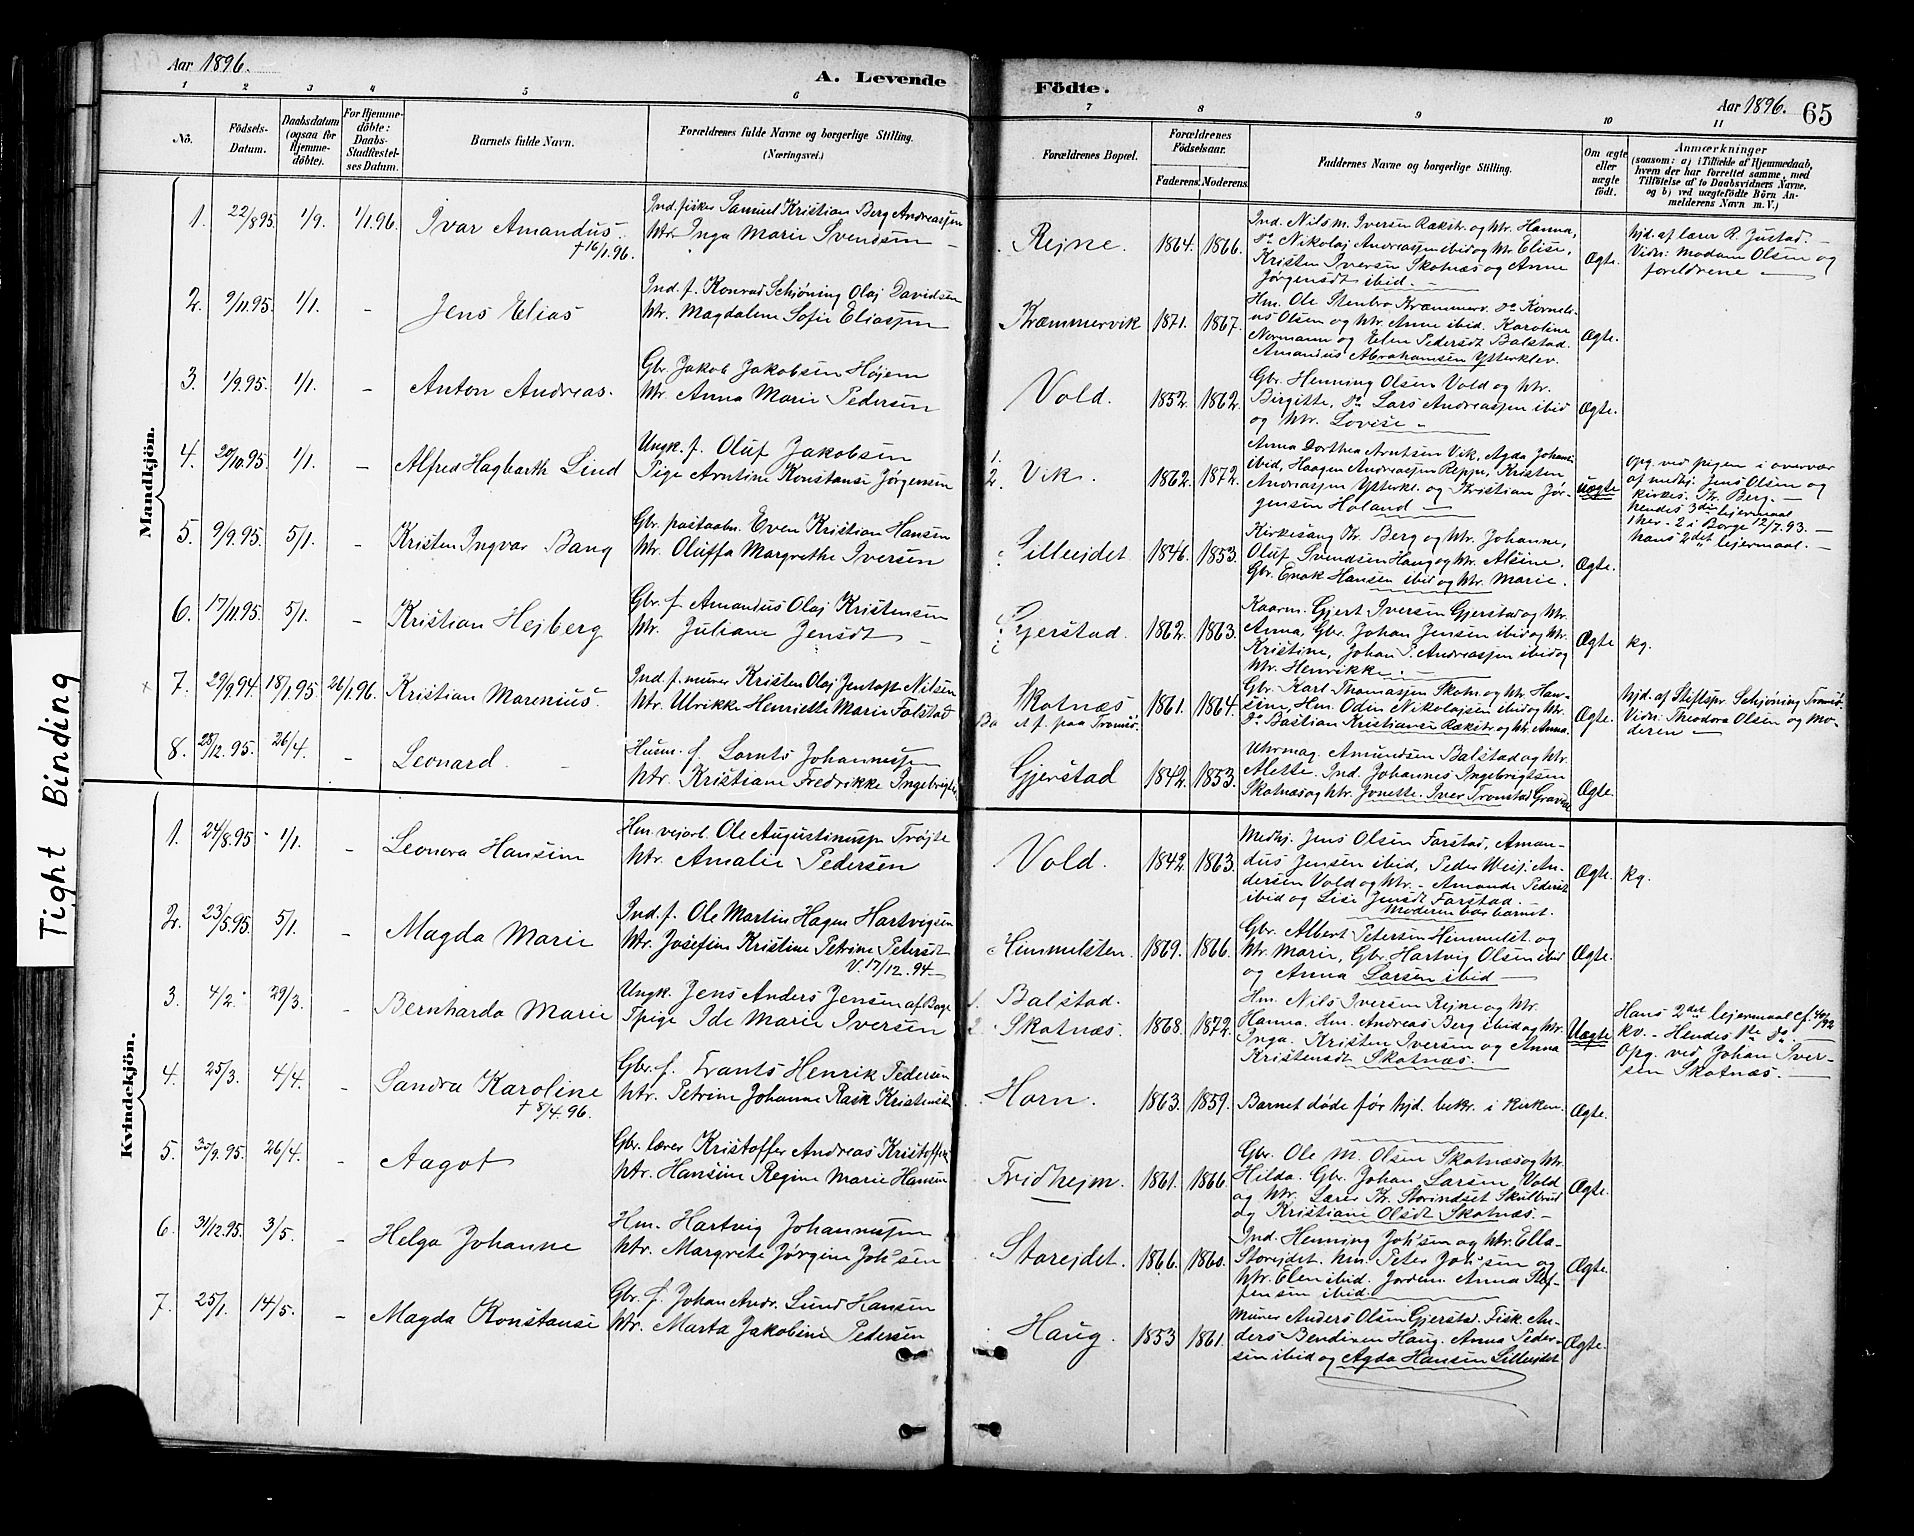 Aar 1896.
A. Levende
Födte.
Aar 1896. 65
1 2 3 4 5 6 7 8 9 10 11
No.
Födsels-Datum.
Daabsdatum (ogsaa for Hjemme-döbte).
For Hjemme-döbte: Daabs-Stadfæstel-ses Datum.
Barnets fulde Navn.
Forældrenes fulde Navne og borgerlige Stilling. (Næringsvei.)
Forældrenes Bopæl.
Forældrenes Födselsaar.
Faderens. Moderens.
Faddernes Navne og borgerlige Stilling.
Om ægte eller uægte födt.
Anmærkninger
(saasom: a) i Tilfælde af Hjemmedaab, hvem der har forrettet samme, med Tilföielse af to Daabsvidners Navne, og b) ved uægtefödte Börn An-melderens Navn m. V.)
Mandkjön.
1. 22/8 95 1/9. 1/1.96. Ivar Amandus. †16/1.96.
Ind. fisker Samuel Kristian Berg Andreassen
Htr. Inga Marie Svendsen —
Rejne. 1864. 1866.
Ind. Nils M. Iversen Rækstr. og Htr. Hanna,
do Nikolaj Andreassen ibid og Htr Elise,
Kristen Iversen Skotnæs og Anne
Jørgensdt ibid. —
Ægte.
Hjd. af lærer R. Justad. —
Vidn: Madam Olsen og
foreldrene —
2. 9/11.95. 1/1. - Jens Elias
Ind. f. Konrad Schjöning Olaj Davidsen
Htr. Magdalene Sofie Eliassen
Kræmmervik 1871. 1867.
Hm. Ole Stenbro Kræmmerv. do Korneli-
us Olsen og Htr. Anne ibid. Karoline
Normann og Elen Pedersdt Balstad.
Amandus Abrahamsen Ytterklev.
Ægte.
3. 1/9.95. 1/1. - Anton Andreas.
Gbr. Jakob Jakobsen Højem
Htr. Anna Marie Pedersen
Vold. 1852. 1862.
Gbr. Henning Olsen Vold og Htr.
Birgitte, do Lars Andreassen ibid
og Htr. Lovise —
Ægte.
4. 20/10.95. 1/1. - Alfred Hagbarth Lind
Ungk. f. Oluf Jakobsen
Pige Arntine Konstanse Jørgensen
1.
2. Vik. 1862. 1872.
Anna Dorthea Arntsen Vik, Agda Johans
ibid, Haagen Andreassen Reppe, Kristen
Andreassen Ytterkl. og Kristian Jør-
gensen Holand —
uægte
Opg. ved pigen i overvær
af medhj. Jens Olsen og
kirkes. Kr. Berg. —
hendes 3die lejermaal
1 her - 2 i Borge 12/7.93. —
hans 2det lejermaal. —
5. 9/9.95. 5/1. - Kristen Ingvar Bang
Gbr. postaabn. Even Kristian Hansen
Htr. Oluffa Margrethe Iversen
Lillejdet. 1846. 1853.
Kirkesang. Kr. Berg og Htr. Johanne,
Oluf Svendsen Haug og Htr. Alsine.
Gbr. Enok Hansen ibid og Htr. Marie.
Ægte.
6. 17/11.95. 5/1. - Kristian Hejberg
Gbr. f. Amandus Olaj Kristensen
Htr. Juliane Jensdt —
Gjerstad. 1862. 1863.
Kaarm. Gjert Iversen Gjerstad og Htr.
Anna, Gbr. Johan Jensen ibid og Htr.
Kristine, Johan P. Andreassen ibid og
Htr. Henrikke. —
Ægte kg.
7. 29/9 94 18/1.95 26/1.96. Kristian Marenius.
Ind. f. murer Kristen Olaj Jentoft Nilsen
Htr. Ulrikke Henriette Marie Falstad
Skotnæs 1861. 1864.
A. f. paa Tromsö.
Gbr. Karl Thomassen Skotn. og Htr. Han-
sine, Hm. Odin Nikolajsen ibid og Htr.
do Bastian Kristiansen Rækstr. og Htr. Anna.
Ægte.
Hjd. af Stiftspr. Schjöning Tromsö.
Vidn: Theodora Olsen og mo-
deren —
8. 28/12.95. 26/4. - Leonard. -
Husm. f. Lornts Johannessen
Htr. Kristiane Fredrikke Ingebrigts.
Gjerstad 1842. 1853.
Uhrmag. Amundsen Balstad og Htr.
Alette. Ind. Johannes Ingebrigtsen
Skotnæs og Htr. Jonette. Iver Tronstad Gravdal
Ægte.
Kvindekjön.
1. 24/8.95 1/1. Leonora Hansine
Hm. vejarb. Ole Augustinussen Trøjte
Htr. Amalie Pedersen
Vold. 1842. 1863.
Medhj. Jens Olsen Farstad, Aman-
dus Jensen ibid, Peder Meij. An-
dersen Vold og Htr. - Amanda Pedersdt
ibid og Lise Jensdt Farstad. —
Moderen bar barnet.
Ægte. kg.
2. 23/5.95. 5/1. - Magda Marie
Ind. f. Ole Martin Hagen Hartvigsen
Htr. Josefine Kristine Petrine Petersdt
V. 17/12.94 —
Himmelsten. 1869. 1866.
Gbr. Albert Petersen Himmelst. og
Htr. Marie, Gbr. Hartvig Olsen ibid
og Anna Larsen ibid —
Ægte.
3. 4/2. 29/3. - Bernharda Marie
Ungk. Jens Anders Jensen af Borge
Pige Ide Marie Iversen
1. Balstad.
2. Skotnæs. 1868. 1872.
Hm. Nils Iversen Rejne og Htr.
Hanna. Hm. Andreas Berg ibid og Htr.
Inga. Kristen Iversen og Anna
Kristensdt Skotnæs.
Uægte
Hans 2det lejermaal cf. 40/92
kv. - Hendes 1ste do —
Opg. ved Johan Iver-
sen Skotnæs. —
4. 25/3. 4/4. - Sandra Karoline †8/4.96.
Gbr. f. Frants Henrik Pedersen
Htr. Petrine Johanne Rask Kristensdt
Horn. 1863. 1859. Barnet døde før hjd. bekr. i kirken. Ægte.
5. 30/9.95. 26/4. - Aagot
Gbr. lærer Kristoffer Andreas Kristoffersen
Htr. Hansine Regine Marie Hansen
Fridhejm. 1861. 1866.
Gbr. Ole M. Olsen Skotnæs og Htr.
Hilda. Gbr. Johan Larsen Vold
og Htr. Lærer Kr. Storindset Skulbrud
og Kristiane Olsdt Skotnæs. —
Ægte.
6. 31/12.95. 3/5. - Helga Johanne
Hm. Hartvig Johannessen
Htr. Margrete Jørgine Joh'sen
Storejdet. 1866. 1860.
Ind. Henning Joh'sen og Htr. Ella
Storejdet. Hm. Peter Joh'sen og
Htr. Elen ibid. Jordem. Anna Stef-
fensen ibid.
Ægte.
7. 25/1. 14/5. - Magda Konstanse
Gbr. f. Johan Andr. Lund Hansen
Htr. Marta Jakobine Pedersen
Haug. 1853 1861.
Murer Anders Olsen Gjerstad. Fisk. An-
ders Bendixen Haug. Anna Peder-
sen ibid og Agda Hansen Lillejdet
Ægte.
Tight Binding